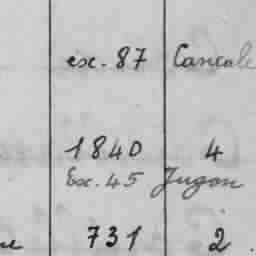 ex. 87 Cancale
1840 4
Ex. 45 Jugon
731 2.